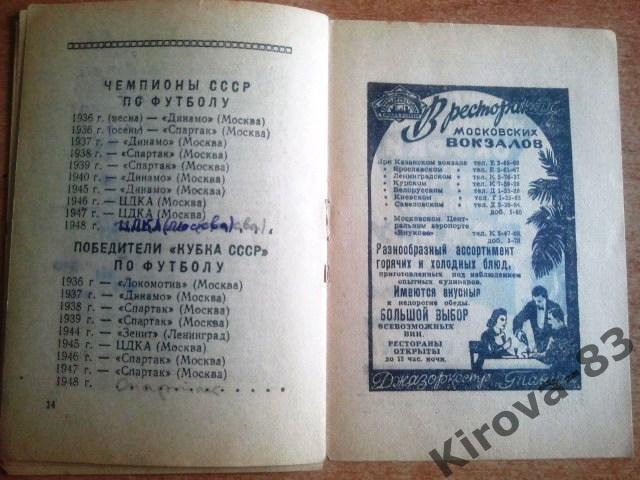 ЧЕМПИОНЫ СССР
ПО ФУТБОЛУ
1936 г. (весна) — «Динамо» (Москва)
1936 г. (осень) — «Спартак» (Москва)
1937 г. — «Динамо» (Москва)
1938 г. — «Спартак» (Москва)
1939 г. — «Спартак» (Москва)
1940 г. — «Динамо» (Москва)
1945 г. — «Динамо» (Москва)
1946 г. — ЦДКА (Москва)
1947 г. — ЦДКА (Москва)
1948 г. ЦДКА (москва).
ПОБЕДИТЕЛИ «КУБКА СССР»
ПО ФУТБОЛУ
1936 г. — «Локомотив» (Москва)
1937 г. — «Динамо» (Москва)
1938 г. — «Спартак» (Москва)
1939 г. — «Спартак» (Москва)
1944 г. — «Зенит» (Ленинград)
1945 г. — ЦДКА (Москва)
1946 г. — «Спартак» (Москва)
1947 г. — «Спартак» (Москва)
1948 г. Спартак
14
В ресторанах
МОСКОВСКИХ
ВОКЗАЛОВ
При Казанском вокзале тел.
» Ярославском » тел.
» Ленинградском » тел.
» Курском » тел.
» Белорусском » тел.
» Киевском » тел.
» Савеловском » тел.
доб.
» Московском Цент-
ральном аэропорте
«Внуково» тел.
доб.
Разнообразный ассортимент
горячих и холодных блюд,
приготовленных под наблюдением
опытных кулинаров.
Имеются вкусные
и недорогие обеды.
БОЛЬШОЙ ВЫБОР
ВСЕВОЗМОЖНЫХ
ВИН.
РЕСТОРАНЫ
ОТКРЫТЫ
до 12 час. ночи.
Джазоркестр. Танцы
Kirova-83